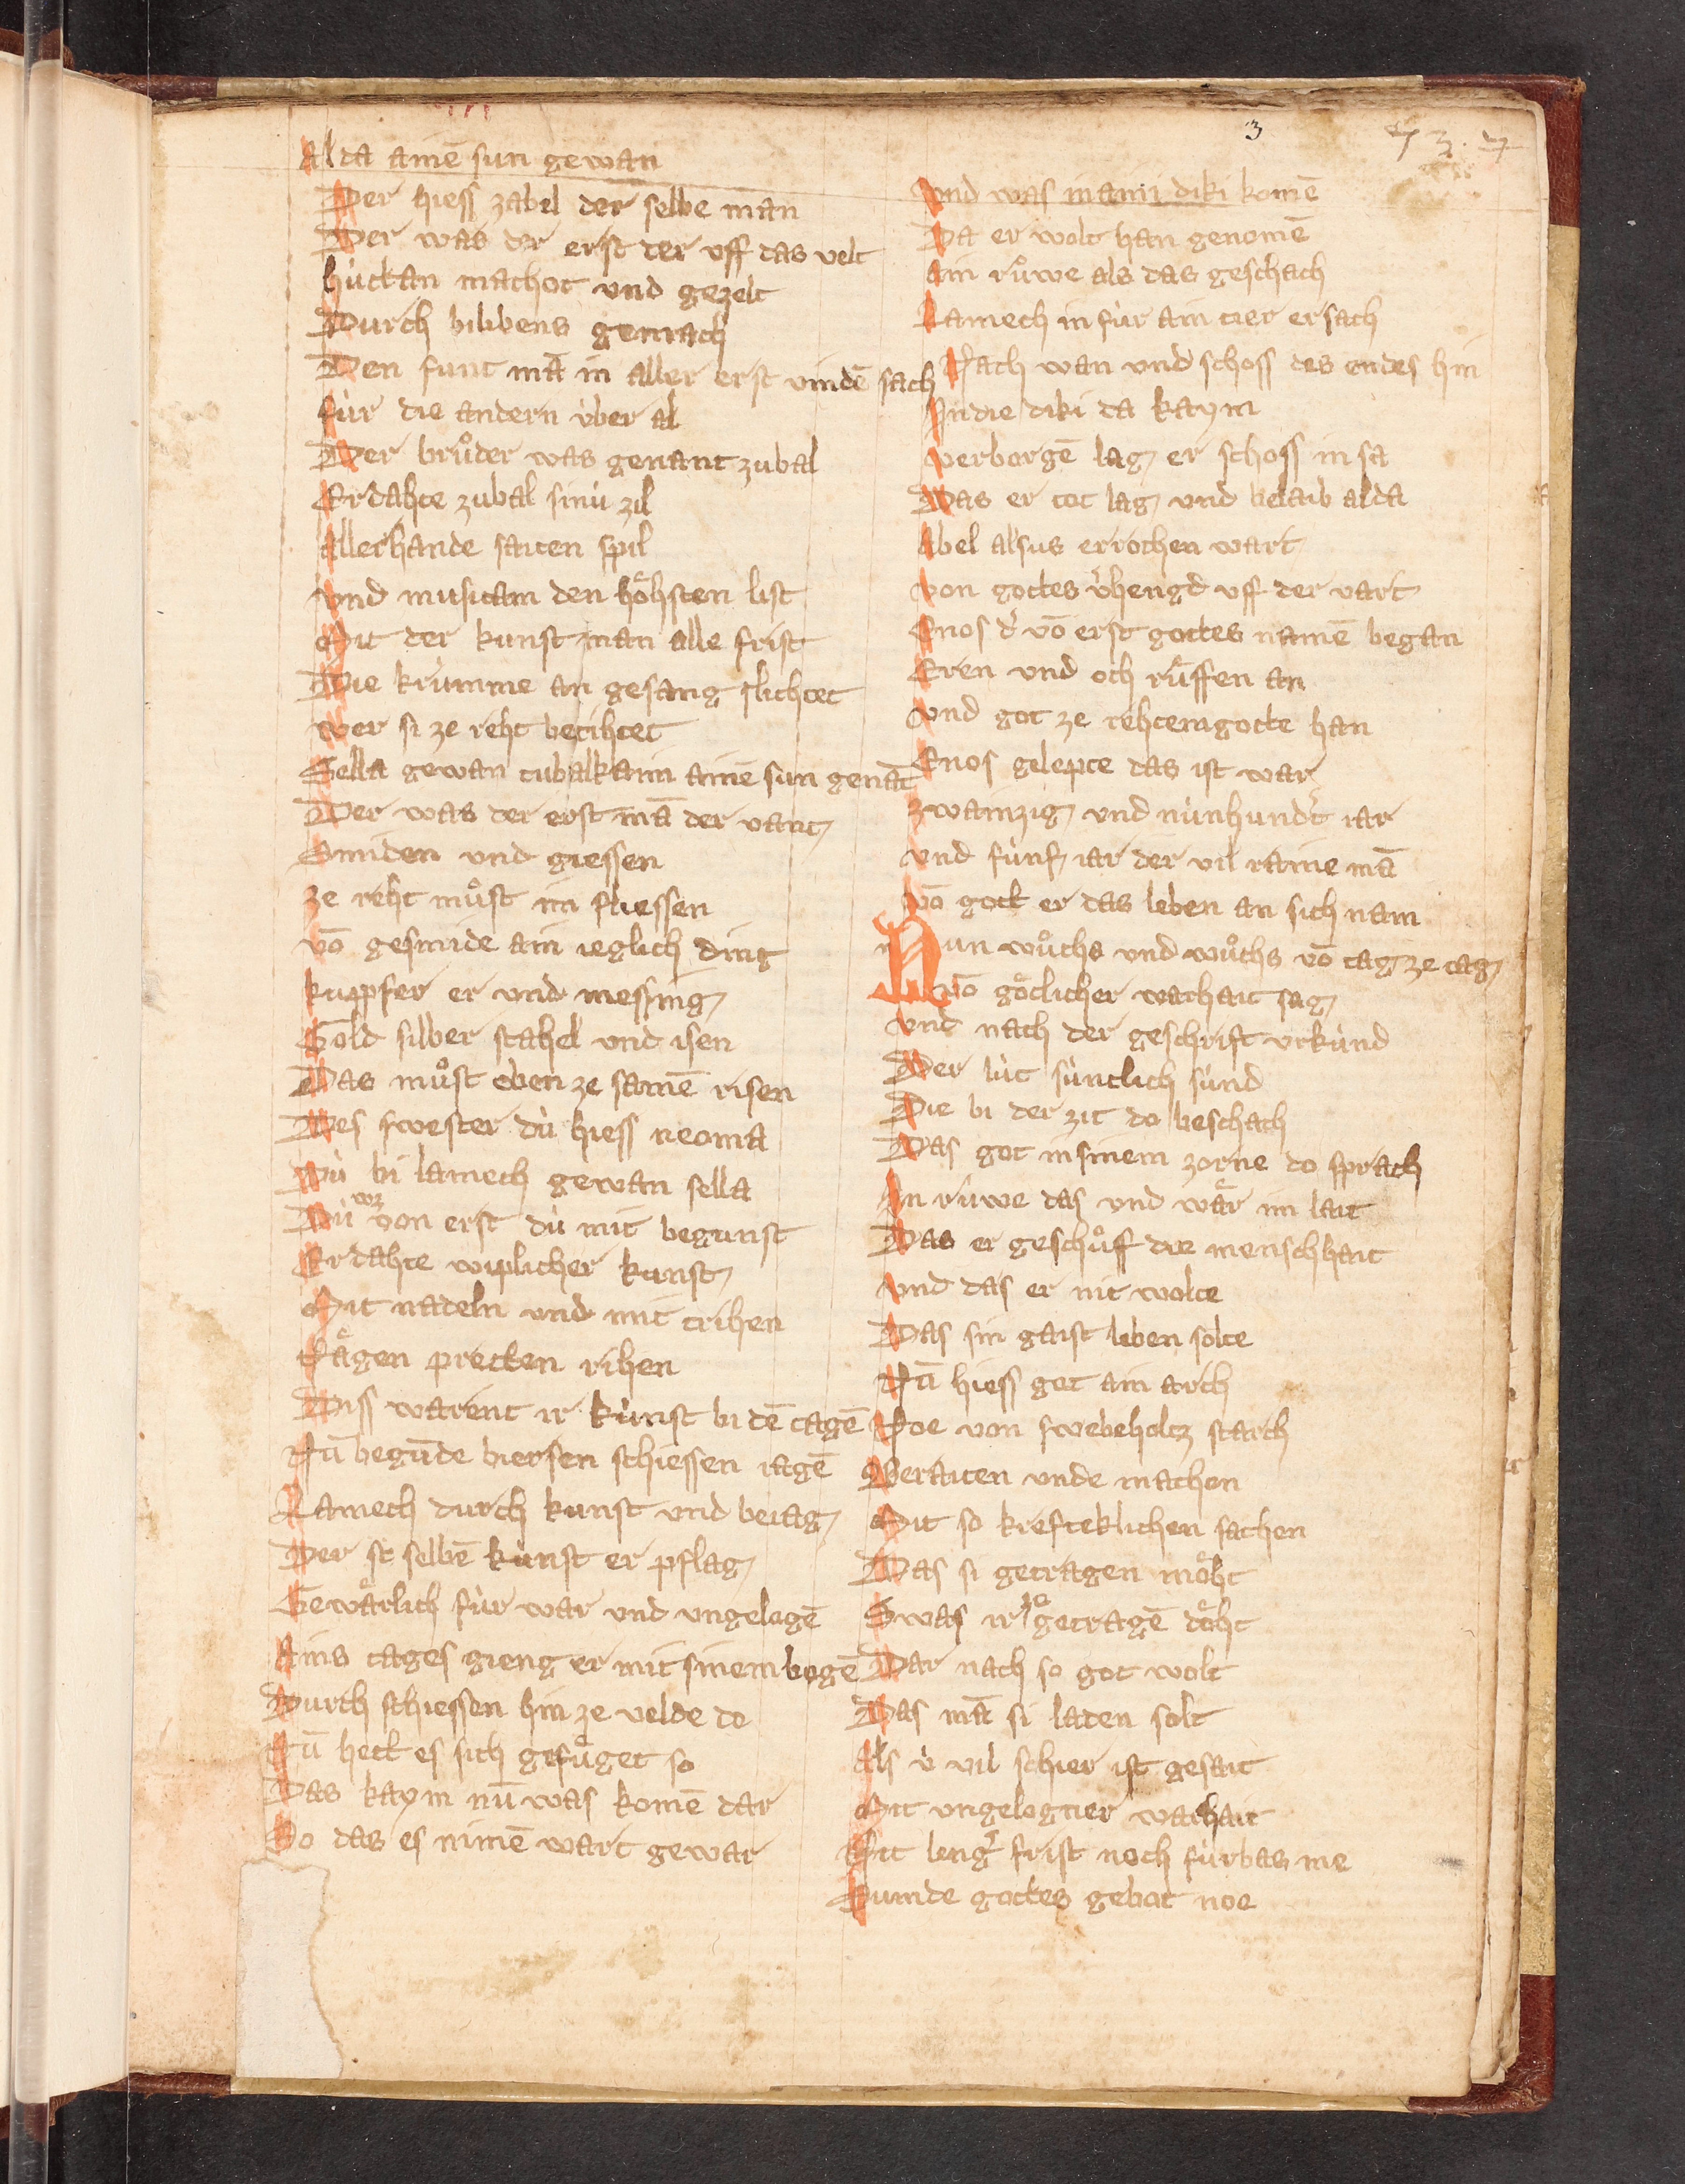 3
Alda ainē sun gewan
Der hiess zabel der selbe man
Der was der erst der vff das velt
húttan machot vnd gezelt
Durch bilibens gemach
Den funt mā in aller erst vindē sach
fúr die andern v́ber al
Der brůder was genant zubal
Erdahte zubal sinú zil
Allerhande saiten spil
vnd musicam den hoͤhsten list
Mit der kunst man alle frist
Die krúmme an gesang slichtet
wer si ze reht betihtet
Sella gewan tubalkaim ainē sun genāt
Der was der erst mā der vant
Smiden vnd giessen
ze reht můst im fliessen
vō gesmide ain ieglich ding
kuppfer er vnd messing
Gold silber stahel vnd isen
Das můst eben ze samē risen
Des swester dú hiess neoma
Dú bi lamech gewan sella
Dú wz von erst dú mit begunst
Erdahte wiplicher kunst
Mit nadeln vnd mit trihen
Naͤgen pretten rihen
Diss warent ir kúnst bi dē tagē
Nū begūde birsen schiessen iagē
Lamech durch kunst vnd beiag
Der st selbē kúnst er pflag
Gewaͤrlich fúr war vnd vngelogē
Ains tages gieng er mit sinem bogē
Durch schiessen hin ze velde do
Nū hett es sich gefuͤget so
Das kaym nū was komē dar
So das es nimē wart gewar
vnd was in aini diki komē
Da er wolt han genomē
Ain růwe als das geschach
Lamech in fúr ain tier ersach
Nach wan vnd schoss des endes hin
In die diki da kaym
verborgē lag er schoss in sa
Das er tot lag vnd belaib alda
Abel alsus errochen wart
von gottes v̓hengd vff der vart
Enos d̓ vō erst gottes namē began
Eren vnd och ruͤffen an
vnd got ze rehtem gotte han
Enos gelepte das ist war
zwainzig vnd núnhund̓t iar
vnd fúnf iar der vil raine mā
vō gott er das leben an sich nam
Nun wůchs vnd wůchs vō tag ze tag
vō goͤtlicher warhait sag
vnd nach der geschrift vrkúnd
Der lút súntlich súnd
Die bi der zit do beschach
Das got in sinem zorne do sprach
In rúwe das vnd waͤr im lait
Das er geschůff die menschhait
vnd das er nit wolte
Das sin gaist leben solte
Nū hiess got ain arch
Noe von swebeholtz starch
Beraiten vnde machen
Mit so krefteklichen sachen
Das si getragen moͤht
Swas ir ze getragē doͤht
Dar nach so got wolt
Das mā si laden solt
Als v́ vil schier ist gesait
Mit vngelogner warhait
Nit leng̓ frist noch fúrbas me
Sumde gottes gebot noe